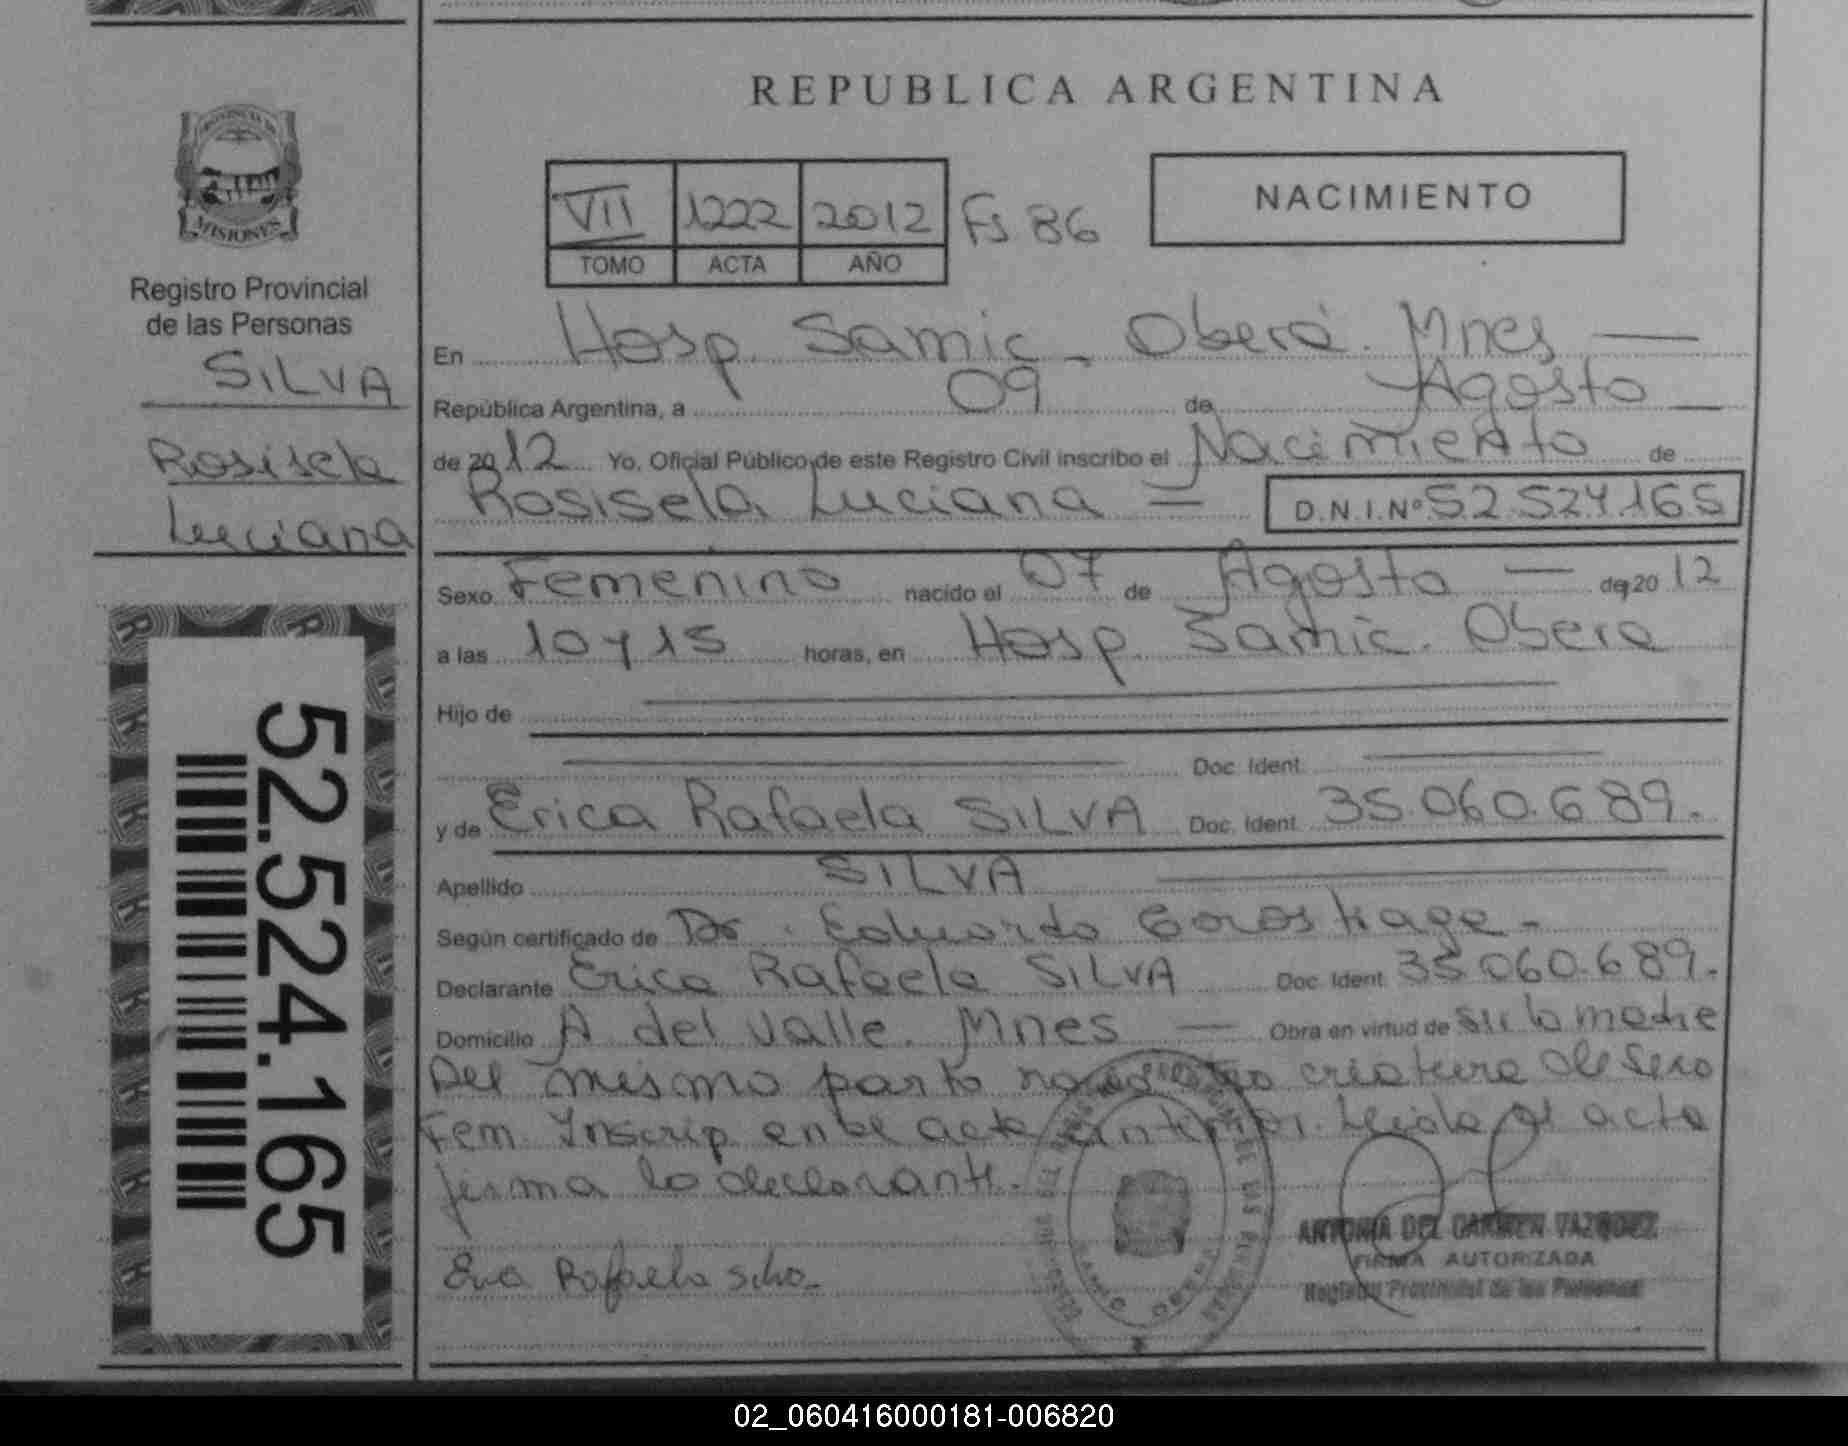 REPUBLICA ARGENTINA
PROVINCIA DE
MISIONES
Registro Provincial
de las Personas
SILVA
Rosisela
Luciana
52.524.165
VII 1222 2012 Fs 86
TOMO ACTA AÑO
NACIMIENTO
En Hosp. Samic - Oberá. Mnes
República Argentina, a 09 de Agosto
de 2012 Yo, Oficial Público de este Registro Civil inscribo el Nacimiento de
Rosisela Luciana = D.N.I.Nº 52.524.165
Sexo Femenino nacido el 07 de Agosto — de 2012
a las 10 y 15 horas, en Hosp. Samic. Obera
Hijo de
Doc. Ident.
y de Erica Rafaela SILVA Doc. Ident. 35.060.689.
Apellido SILVA
Según certificado de Dr. Eduardo
Declarante Erica Rafaela SILVA Doc. Ident. 35.060.689.
Domicilio A del Valle. Mnes — Obra en virtud de ser la madre
Del mismo parto criatura de sexo
Fem. Inscrip. en el acta anterior. Leida el acta
firma la declarante.
Rafaela Silva
ANTONIA DEL CARMEN VAZQUEZ
FIRMA AUTORIZADA
Registro Provincial de las Personas
02_060416000181-006820